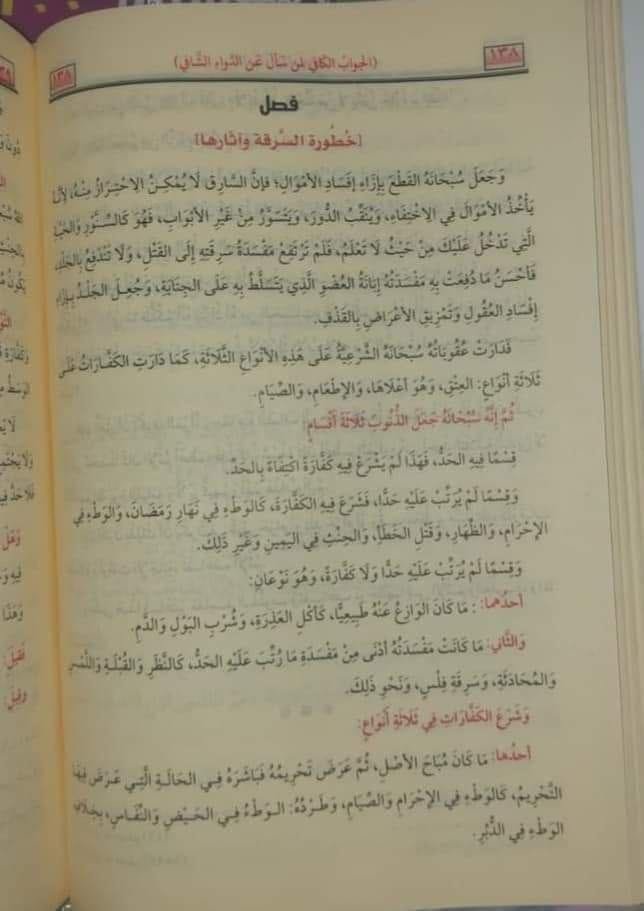 ١٣٨
(الجواب الكافي لمن سأل عن الدواء الشافي)
١٣٨
فصل
[خُطُورة السَّرقة وآثارها]
وَجَعَلَ سُبْحَانَهُ القَطْعَ بِإِزَاءِ إِفْسَادِ الأَمْوَالِ؛ فإنَّ السَّارِقَ لَا يُمْكِنُ الِاحْتِرَازُ مِنْهُ؛ لِأَنَّهُ
يَأْخُذُ الأَمْوَالَ فِي الِاخْتِفَاءِ، وَيُنَقِّبُ الدُّورَ، وَيَتَسَوَّرُ مِنْ غَيْرِ الأَبْوَابِ، فَهُوَ كَالسِّنَّوْرِ وَالحَيَّةِ
الَّتِي تَدْخُلُ عَلَيْكَ مِنْ حَيْثُ لَا تَعْلَمُ، فَلَمْ تَرْتَفِعْ مَفْسَدَةُ سَرِقَتِهِ إِلَى القَتْلِ، وَلَا تَنْدَفِعُ بِالجَلْدِ،
فَأَحْسَنُ مَا دُفِعَتْ بِهِ مَفْسَدَتُهُ إِبَانَةُ العُضْوِ الَّذِي يَتَسَلَّطُ بِهِ عَلَى الجِنَايَةِ، وَجُعِلَ الجَلْدُ بِإِزَاءِ
إِفْسَادِ العُقُولِ وَتَمْزِيقِ الأَعْرَاضِ بِالقَذْفِ.
فَدَارَتْ عُقُوبَاتُهُ سُبْحَانَهُ الشَّرْعِيَّةُ عَلَى هَذِهِ الأَنْوَاعِ الثَّلَاثَةِ، كَمَا دَارَتِ الكَفَّارَاتُ عَلَى
ثَلَاثَةِ أَنْوَاعٍ: العِتْقِ، وَهُوَ أَعْلَاهَا، وَالإِطْعَامِ، وَالصِّيَامِ.
ثُمَّ إِنَّهُ سُبْحَانَهُ جَعَلَ الذُّنُوبَ ثَلَاثَةَ أَقْسَامٍ:
قِسْمًا فِيهِ الحَدُّ، فَهَذَا لَمْ يَشْرَعْ فِيهِ كَفَّارَةً اكْتِفَاءً بِالحَدِّ.
وَقِسْمًا لَمْ يُرَتِّبْ عَلَيْهِ حَدًّا، فَشَرَعَ فِيهِ الكَفَّارَةَ، كَالوَطْءِ فِي نَهَارِ رَمَضَانَ، وَالوَطْءِ فِي
الإِحْرَامِ، وَالظِّهَارِ، وَقَتْلِ الخَطَأِ، وَالحِنْثِ فِي اليَمِينِ وَغَيْرِ ذَلِكَ.
وَقِسْمًا لَمْ يُرَتِّبْ عَلَيْهِ حَدًّا وَلَا كَفَّارَةً، وَهُوَ نَوْعَانِ:
أَحَدُهُمَا: مَا كَانَ الوَازِعُ عَنْهُ طَبِيعِيًّا، كَأَكْلِ العَذِرَةِ، وَشُرْبِ البَوْلِ وَالدَّمِ.
وَالثَّانِي: مَا كَانَتْ مَفْسَدَتُهُ أَدْنَى مِنْ مَفْسَدَةِ مَا رُتِّبَ عَلَيْهِ الحَدُّ، كَالنَّظَرِ وَالقُبْلَةِ وَاللَّمْسِ
وَالمُحَادَثَةِ، وَسَرِقَةِ فِلْسٍ، وَنَحْوِ ذَلِكَ.
وَشَرَعَ الكَفَّارَاتِ فِي ثَلَاثَةِ أَنْوَاعٍ:
أَحَدُهَا: مَا كَانَ مُبَاحَ الأَصْلِ، ثُمَّ عَرَضَ تَحْرِيمُهُ فَبَاشَرَهُ فِي الحَالَةِ الَّتِي عَرَضَ فِيهَا
التَّحْرِيمُ، كَالوَطْءِ فِي الإِحْرَامِ وَالصِّيَامِ، وَطَرْدُهُ: الوَطْءُ فِي الحَيْضِ وَالنِّفَاسِ، بِخِلَافِ
الوَطْءِ فِي الدُّبُرِ.